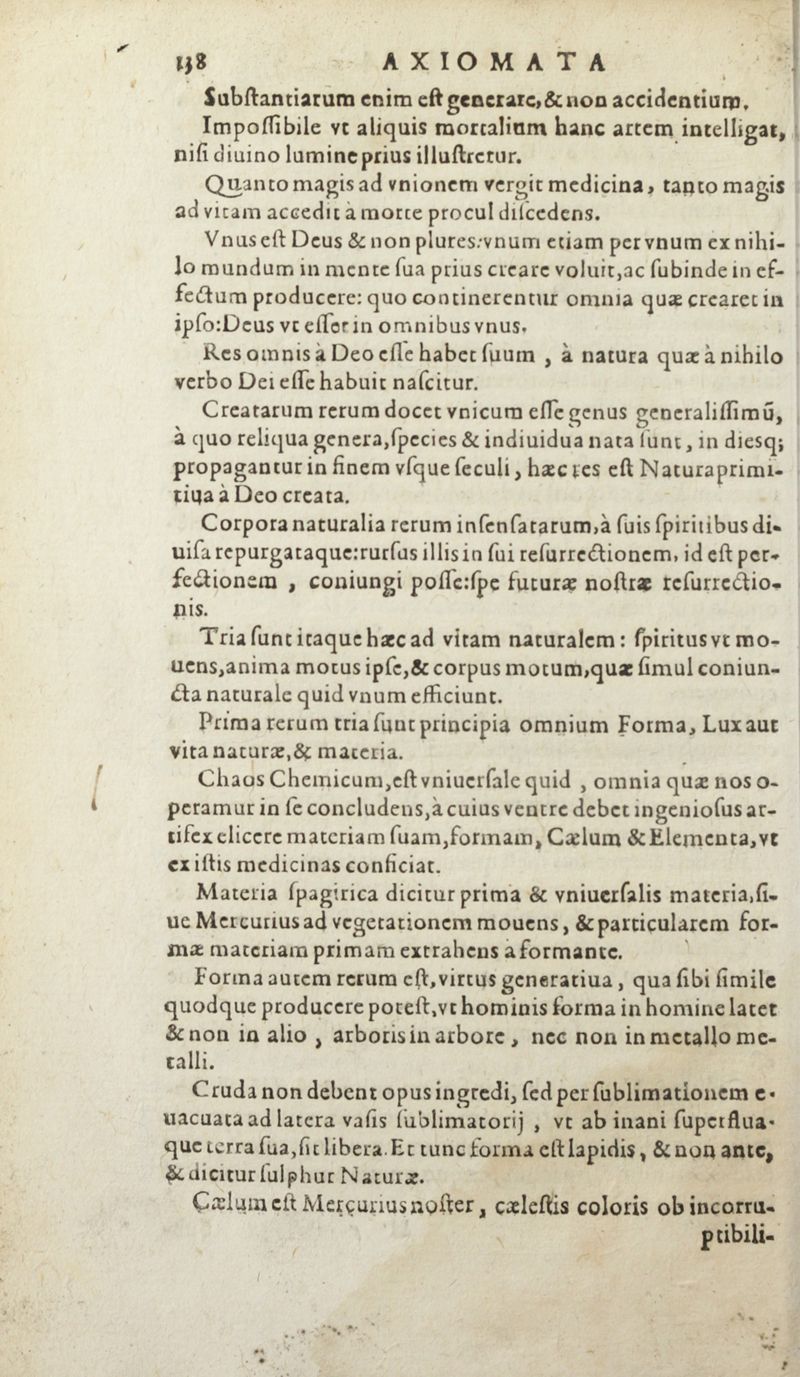 138 AXIOMATA
Subſtantiarum enim eſt generare, & non accidentium.
Impoſſibile vt aliquis mortalium hanc artem intelligat,
niſi diuino lumine prius illuſtretur.
Quanto magis ad vnionem vergit medicina, tanto magis
ad vitam accedit à morte procul diſcedens.
Vnus eſt Deus & non plures: vnum etiam per vnum ex nihi-
lo mundum in mente ſua prius creare voluit, ac ſubinde in ef-
fectum producere: quo continerentur omnia quæ crearet in
ipſo: Deus vt eſſet in omnibus vnus.
Res omnis à Deo eſſe habet ſuum , à natura quæ à nihilo
verbo Dei eſſe habuit naſcitur.
Creatarum rerum docet vnicum eſſe genus generaliſſimũ,
à quo reliqua genera, ſpecies & indiuidua nata ſunt, in diesq;
propagantur in finem vſque ſeculi, hæc res eſt Natura primi-
tiua à Deo creata.
Corpora naturalia rerum inſenſatarum, à ſuis ſpiritibus di-
uiſa repurgataque: rurſus illis in ſui reſurrectionem, id eſt per-
fectionem , coniungi poſſe: ſpe futuræ noſtræ reſurrectio-
nis.
Tria ſunt itaque hæc ad vitam naturalem: ſpiritus vt mo-
uens, anima motus ipſe, & corpus motum, quæ ſimul coniun-
cta naturale quid vnum efficiunt.
Prima rerum tria ſunt principia omnium Forma, Lux aut
vita naturæ, & materia.
Chaos Chemicum, eſt vniuerſale quid , omnia quæ nos o-
peramur in ſe concludens, à cuius ventre debet ingenioſus ar-
tifex elicere materiam ſuam, formam, Cælum & Elementa, vt
ex iſtis medicinas conficiat.
Materia ſpagirica dicitur prima & vniuerſalis materia, ſi-
ue Mercurius ad vegetationem mouens, & particularem for-
mæ materiam primam extrahens a formante.
Forma autem rerum eſt, virtus generatiua, qua ſibi ſimile
quodque producere poteſt, vt hominis forma in homine latet
& non in alio , arboris in arbore , nec non in metallo me-
talli.
Cruda non debent opus ingredi, ſed per ſublimationem e-
uacuata ad latera vaſis ſublimatorij , vt ab inani ſuperflua-
que terra ſua, fit libera. Et tunc forma eſt lapidis, & non ante,
& dicitur ſulphur Naturæ.
Cælum eſt Mercurius noſter, cæleſtis coloris ob incorru-
ptibili-